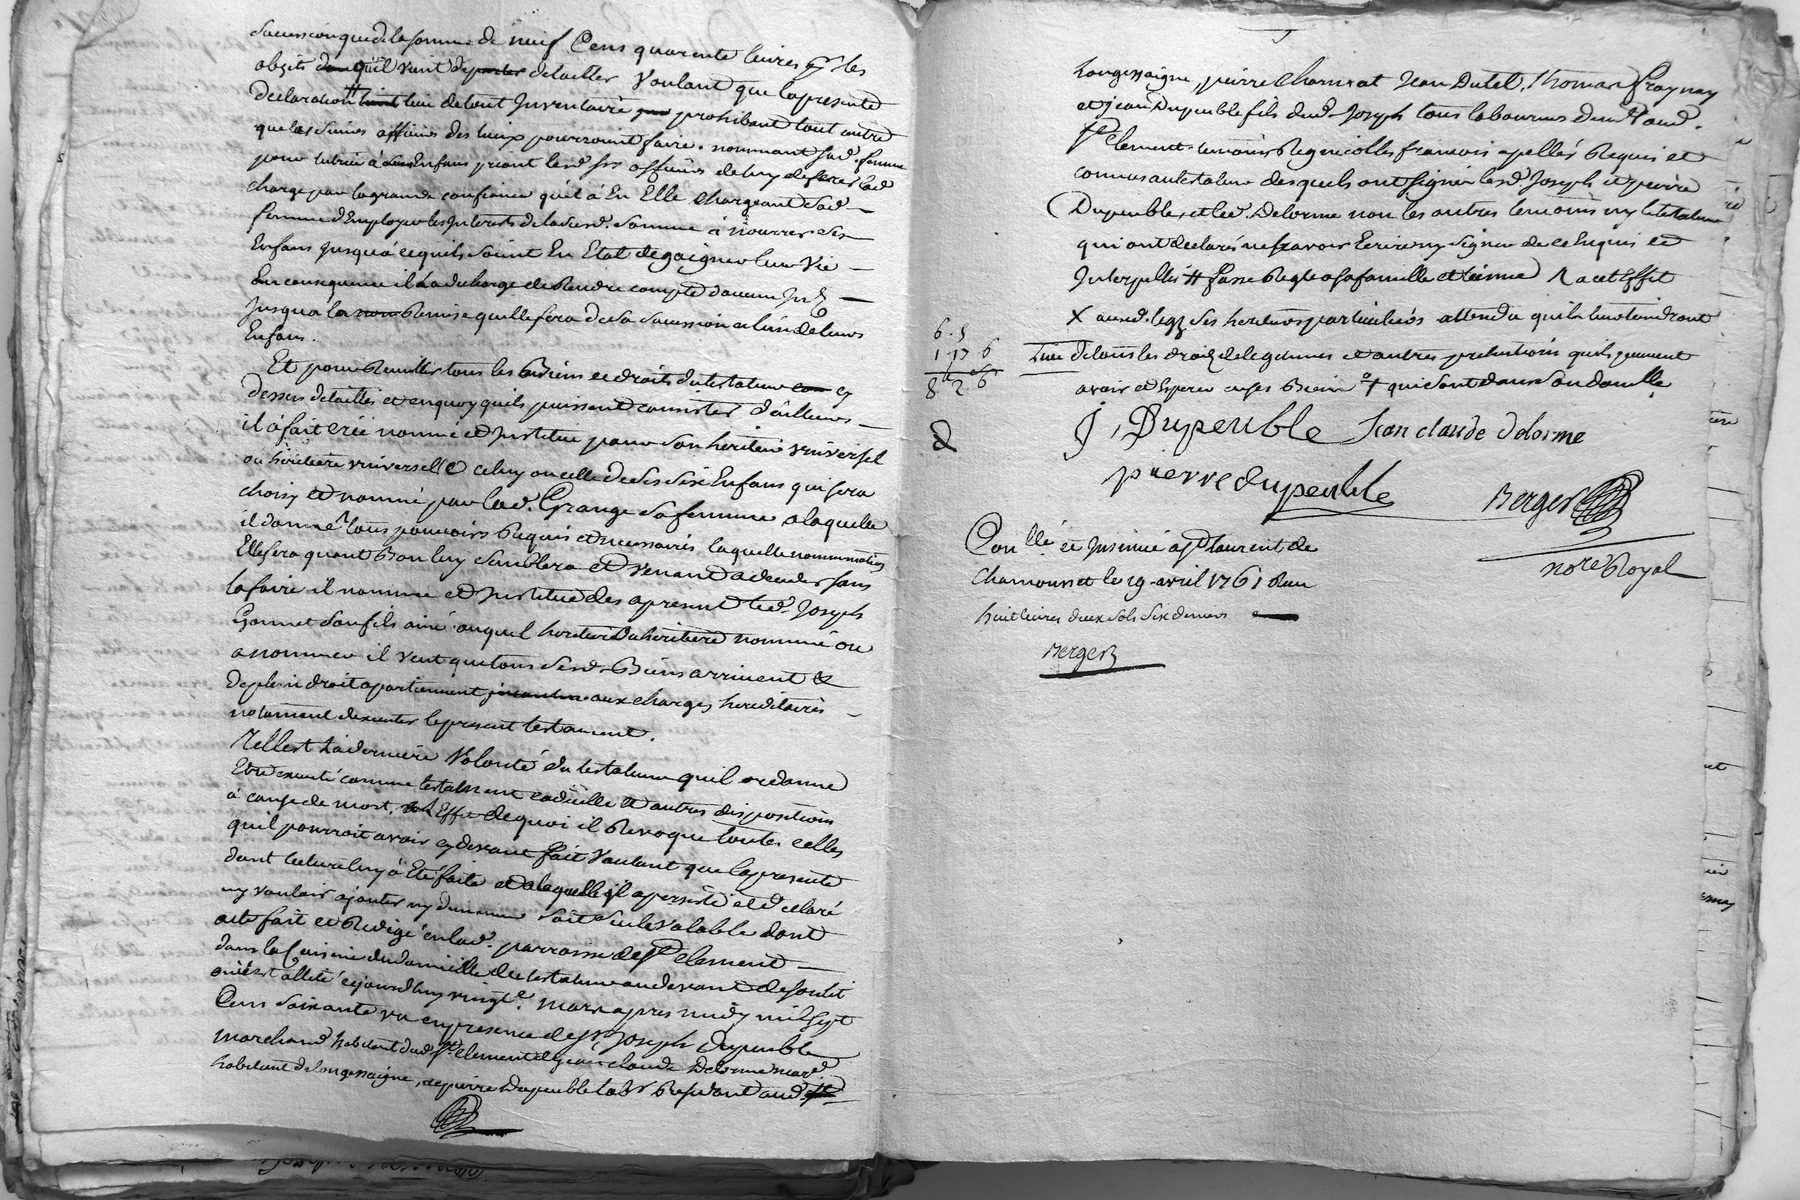 succession que de la somme de neuf Cens quarente livres et les
objets quil vient detailler Voulant que la presente
declaration lui tint lieu de tout Inventaire prohibant tout autre
que les sieurs officiers des lieux pourroient faire. nommant sad. femme
pour tutrice a ses Enfans priant lesd. srs officiers de luy deferer lad.
charge par la grande confiance qu'il à En Elle chargeant sad.
femme d'Employer les Interets de lad. somme à nourrir ses
Enfans jusqu'à ce quils soient En Etat de gaigner leur Vie
En consequence il la decharge de Rendre compte d'aucuns
jusqua la Remise quelle fera de sa sucession a lun de leurs
Enfans.
Et pour Recueillir tous les Biens et droits du testateur cy
dessus detaillés et en quoy quils puissent consister d'ailleurs
il à fait créé nommé et Institué pour son heritier universel
ou heritiere universelle celuy ou celle de ses six Enfans qui sera
choisy et nommé par lad. Grange sa femme a laquelle
il donne tous pouvoirs Requis et necessaires laquelle nommination
Elle fera quant Bon luy semblera et venant a deceder sans
la faire il nomme et Institue des apresent led. Joseph
Gonnet son fils ainé auquel heritier ou heritiere nommé ou
a nommer il veut que tous sesd. Biens arrivent &
de plein droit apartiennent aux charges hereditaires
notament dexecuter le present testament.
Telle est la derniere Volonté du testateur quil ordonne
Etre executé comme testament codicille et autres dispositions
à cause de mort, a l'Effet de quoi il Revoque toutes celles
quil pourroit avoir cy devant fait voulant que la presente
dont lecture luy à Eté faite et a laquelle il a persisté et declaré
ny vouloir ajouter ny diminuer soit seule valable dont
acte fait et Redigé en lad. parroisse de St. Clement
dans la Cuisine du domicille du testateur au devant de son lit
où il est allité cejourdhuy vingt mars apres midy mil sept
Cens soixante un en presence de Sr. Joseph Dupeuble
marchand habitant dud. St. Clement de jean claude Delorme mard.
habitant de longessaigne, de pierre Dupeuble labr. Residant aud.
longessaigne, pierre Charverat Jean Dutel, Thomas fraynay
et jean Dupeuble fils dud. Joseph tous laboureurs dem.t aud.
St. Clement. temoins Regnicolles francois apellés Requis et
connus au testateur desquels ont signé lesd. Joseph et pierre
Dupeuble, et led. Delorme non les autres temoins ny le testateur
qui ont declarés ne scavoir Ecrire ny signer de ce Enquis et
Interpellés # fasse Regle a sa famille et tienne a cet Effet
X auxd. legs ses heritiers particuliers attendu quils leur tiendront
6. 5
1 17 6
8 2 6
Lieu de tous les droits de legitimes et autres pretentions quils peuvent
avoir et Esperer en ses Biens + qui sont dans son domicille
J, Dupeuble Jean claude Delorme
pierre dupeuble
Berger
nore Royal
Conllé et Insinué a St. laurent de
chamousset le 19 avril 1761 Reçu
huit livres deux sols six deniers
Berger